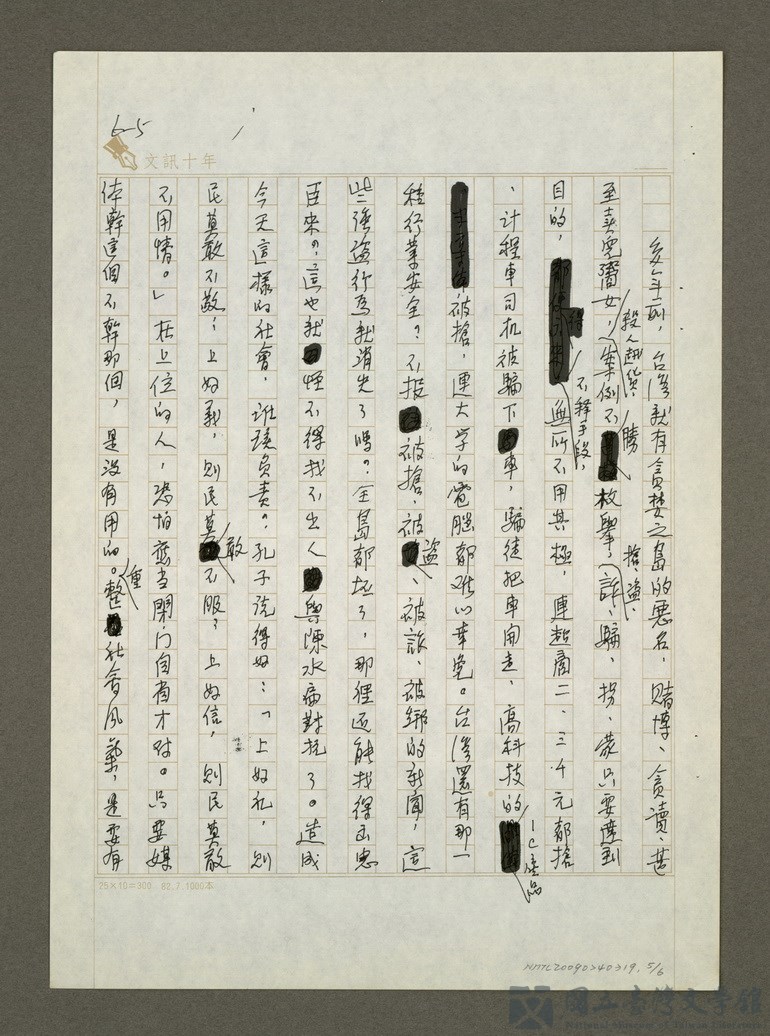 6-5
文訊十年
多年前,台灣就有貪婪之島的惡名,賭博、貪瀆、甚
至賣兒鬻女,殺人越貨,案例不勝枚舉,搶、盜、詐、騙、拐、蒙只要達到
目的,不擇手段,無所不用其極,連超商二、三千元都搶
、計程車司机被騙下車,騙徒把車開走,高科技的IC產品
被搶,連大学的電腦都难以幸免。台灣還有那一
種行業安全?不報被搶、被盜、被詐、被綁的新聞,這
些強盜行為就消失了嗎?全島都壞了,那裡还能找得出忠
臣來?,這也就怪不得找不出人與陳水扁對抗了。造成
今天這樣的社會,誰該負責?孔子說得好:「上好礼,則
民莫敢不敬;上好義,則民莫敢不服;上好信,則民莫敢
不用情。」在上位的人,恐怕應当閉門自省才对。只要媒
体幹這個不幹那個,是没有用的。重整社會風氣,是要有
25×10=300 82.7.1000本
NMTL20090340319. 5/6
國立臺灣文學館